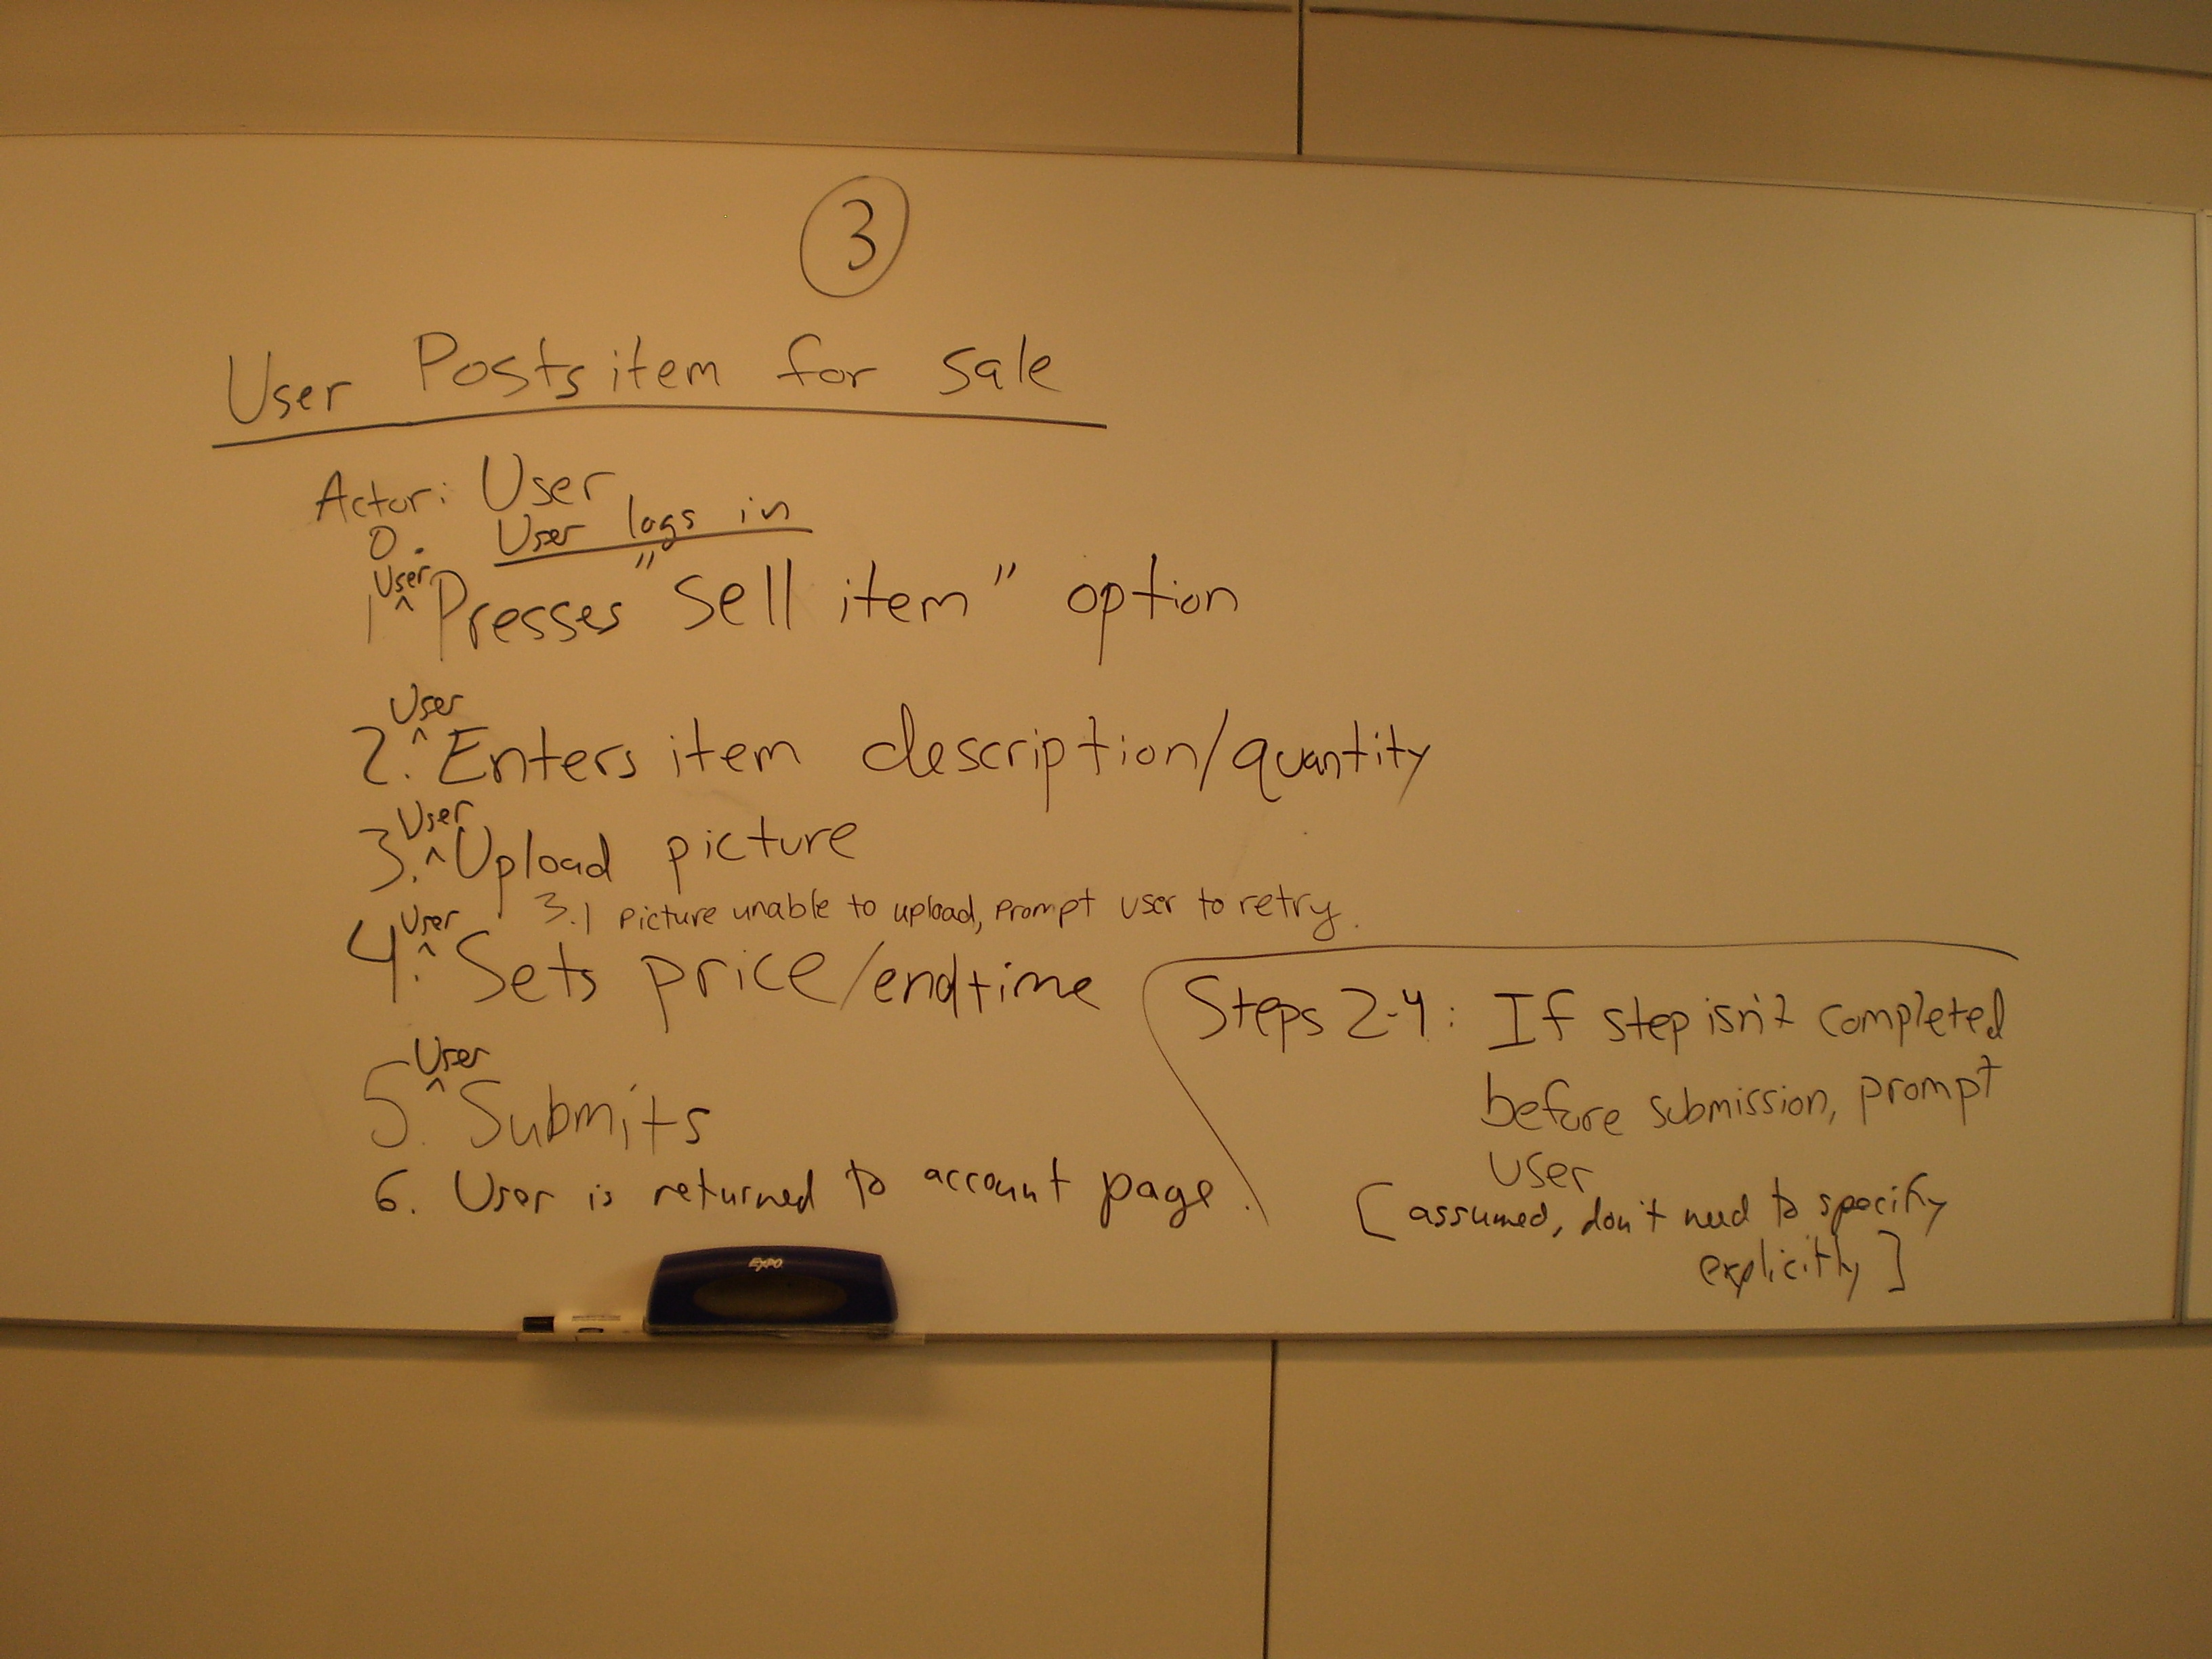 3
User Posts item for sale
Actor: User
0. User logs in
1 ^User Presses "Sell item" option
2. ^User Enters item description/quantity
3. ^User Upload picture
3.1 Picture unable to upload, prompt user to retry.
4. ^User Sets price/endtime
5. ^User Submits
6. User is returned to account page.
Steps 2-4: If step isn't completed
before submission, prompt
user
[assumed, don't need to specify
explicitly]
EXPO